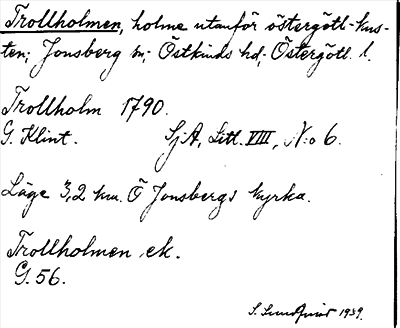 Trollholmen, holme utanför östergötl. kus-
ten; Jonsberg sn; Östkinds hd; Östergötl. l.
Trollholm 1790.
G. Klint. SjA, Litt. VIII, N:o 6.
Läge 3,2 km. Ö Jonsbergs kyrka.
Trollholmen ek.
G. 56.
S. Sundqvist 1939.